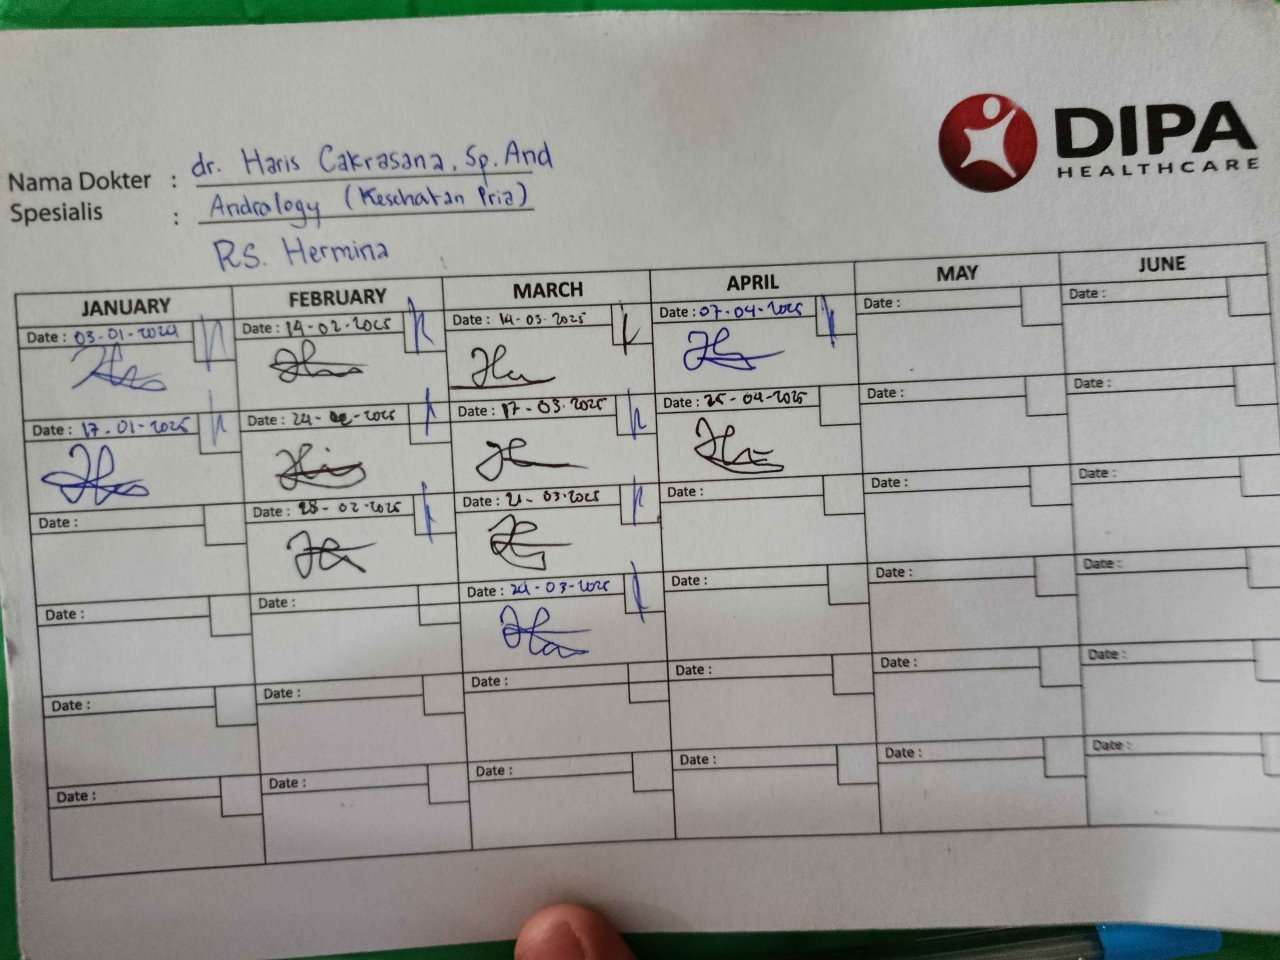 DIPA
HEALTHCARE
Nama Dokter : dr. Haris Cakrasana, Sp. And
Spesialis : Andralogy (Kesehatan Pria)
RS. Hermina
JANUARY FEBRUARY MARCH APRIL MAY JUNE
Date : 03-01-2024 Date : 14-02-2025 Date : 14-03-2025 Date : 07-04-2025 Date : Date :
Date : 17-01-2025 Date : 24-02-2025 Date : 17-03-2025 Date : 25-04-2025 Date : Date :
Date : Date : 28-02-2025 Date : 21-03-2025 Date : Date : Date :
Date : Date : Date : 24-03-2025 Date : Date : Date :
Date : Date : Date : Date : Date : Date :
Date : Date : Date : Date : Date : Date :